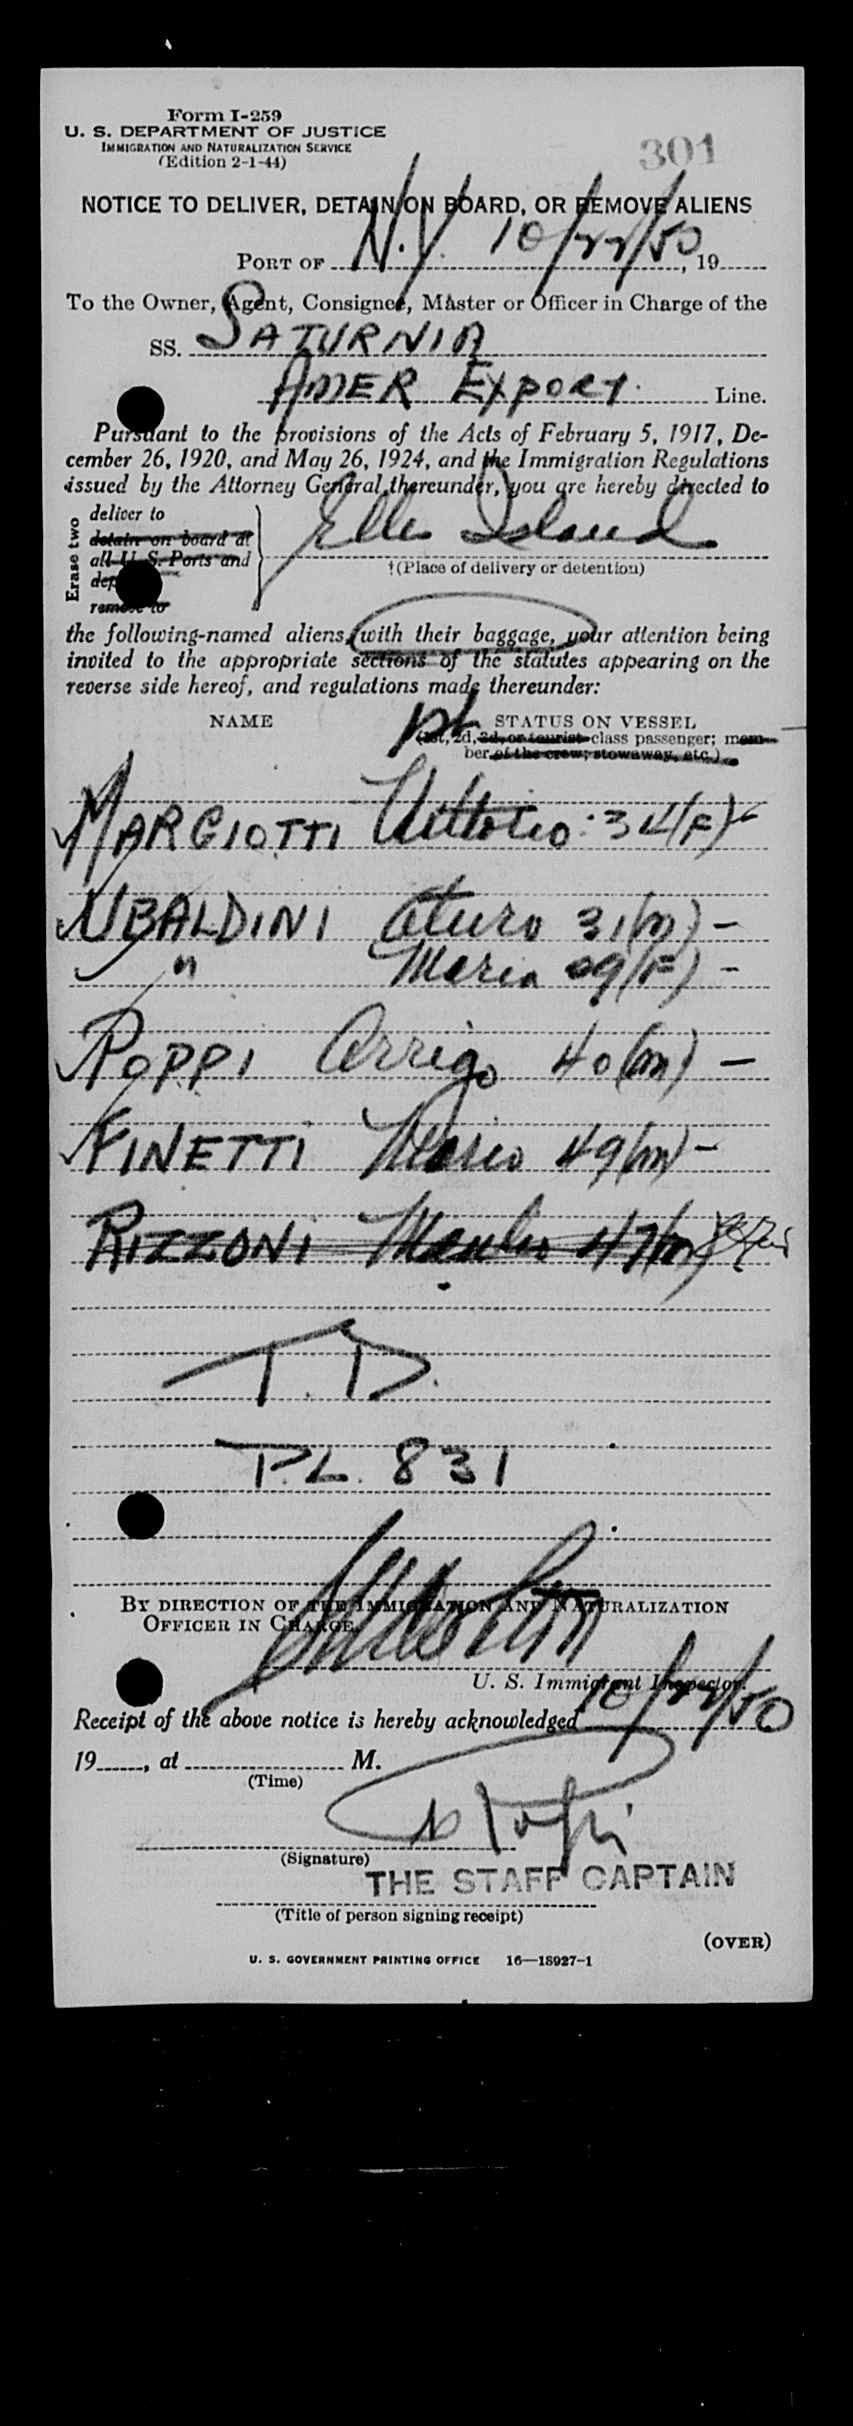 Form I-259
U. S. DEPARTMENT OF JUSTICE
IMMIGRATION AND NATURALIZATION SERVICE
(Edition 2-1-44)
301
NOTICE TO DELIVER, DETAIN ON BOARD, OR REMOVE ALIENS
PORT OF N.Y. 10/22/50, 19
To the Owner, Agent, Consignee, Master or Officer in Charge of the
SS. SATURNIA
AMER EXPORT Line.
Pursuant to the provisions of the Acts of February 5, 1917, De-
cember 26, 1920, and May 26, 1924, and the Immigration Regulations
issued by the Attorney General thereunder, you are hereby directed to
Erase two
deliver to
detain on board at
all U. S. Ports and
remove to
Ellis Island
†(Place of delivery or detention)
the following-named aliens, with their baggage, your attention being
invited to the appropriate sections of the statutes appearing on the
reverse side hereof, and regulations made thereunder:
NAME STATUS ON VESSEL
(1st, 2d, 3d, or tourist class passenger; mem-
ber of the crew; stowaway, etc.)
MARGIOTTI 34(F)
UBALDINI Aturo 31(M) -
" Maria 29(F) -
POPPI Arrigo 40(M) -
FINETTI Mario 49(M) -
RIZZONI 47(M)
T.D.
P.L. 831
BY DIRECTION OF THE IMMIGRATION AND NATURALIZATION
OFFICER IN CHARGE.
U. S. Immigrant Inspector.
Receipt of the above notice is hereby acknowledged 10/22/50
19, at M.
(Time)
(Signature)
THE STAFF CAPTAIN
(Title of person signing receipt)
(OVER)
U. S. GOVERNMENT PRINTING OFFICE 16—18927-1